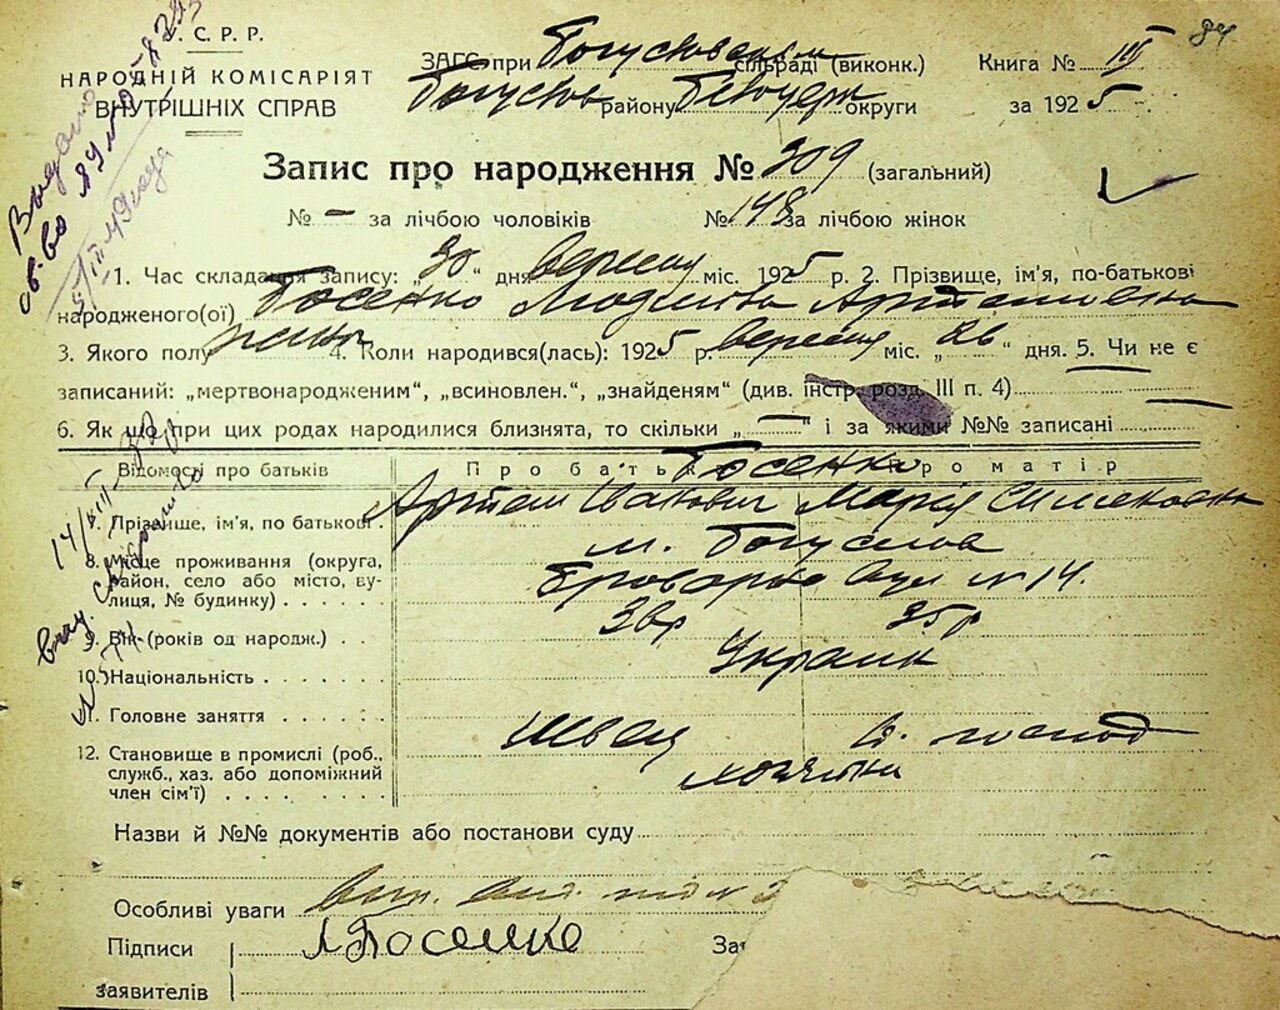 У.С.Р.Р.
НАРОДНІЙ КОМІСАРІЯТ
ВНУТРІШНІХ СПРАВ
ЗАГС при Богуславськім сільраді (виконк.)
Богуслав району Білоцерк округи
Книга № III
за 1925
84
Запис про народження № 309 (загальний)
№ – за лічбою чоловіків № 148 за лічбою жінок
1. Час складання запису: „30“ дня вересня міс. 1925 р. 2. Прізвище, ім'я, по-батькові
народженого(ої) Босенко Людмила Артемовна
3. Якого полу жіни 4. Коли народився(лась): 1925 р. вересня міс. „26“ дня. 5. Чи не є
записаний: „мертвонародженим“, „всиновлен.“, „знайденям“ (див. інстр. розд. III п. 4) —
6. Як що при цих родах народилися близнята, то скільки „—“ і за якими №№ записані
Відомості про батьків
Про батька Босенко Про матір
7. Прізвище, ім'я, по батькові. Артем Іванович Марія Сименовна
8. Місце проживання (округа, м. Богуслав
район, село або місто, ву- Броварна вул № 14.
лиця, № будинку) . . . . .
9. Вік (років од народж.) . . 35р
10. Національність . . . . . . . Украин
11. Головне заняття . . . . . . швец д. господ
12. Становище в промислі (роб.,
служб., хаз. або допоміжний
член сім'ї) . . . . . . . . .
Назви й №№ документів або постанови суду
Особливі уваги
Підписи А Босенко
заявителів
За